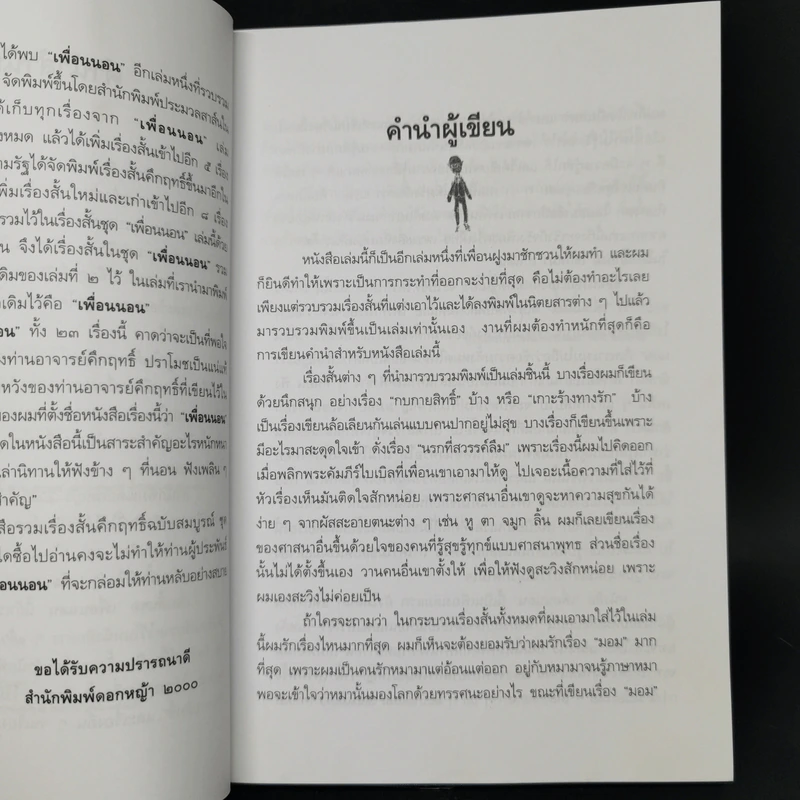 ได้พบ "เพื่อนนอน" อีกเล่มหนึ่งที่รวบรวม
จัดพิมพ์ขึ้นโดยสำนักพิมพ์ประมวลสาส์นใน
เก็บทุกเรื่องจาก "เพื่อนนอน" เล่ม
แล้วได้เพิ่มเรื่องสั้นเข้าไปอีก ๕ เรื่อง
ได้จัดพิมพ์เรื่องสั้นคึกฤทธิ์ขึ้นมาอีกใน
เรื่องสั้นใหม่และเก่าเข้าไปอีก ๘ เรื่อง
รวมไว้ในเรื่องสั้นชุด "เพื่อนนอน" เล่มนี้ด้วย
จึงได้เรื่องสั้นในชุด "เพื่อนนอน" รวม
เดิมของเล่มที่ ๒ ไว้ ในเล่มที่เรานำมาพิมพ์
เดิมไว้คือ "เพื่อนนอน"
ทั้ง ๒๓ เรื่องนี้ คาดว่าจะเป็นที่พอใจ
ท่านอาจารย์คึกฤทธิ์ ปราโมชเป็นแน่แท้
หวังของท่านอาจารย์คึกฤทธิ์ที่เขียนไว้ใน
ของผมที่ตั้งชื่อหนังสือเรื่องนี้ว่า "เพื่อนนอน"
ในหนังสือนี้เป็นสาระสำคัญอะไรหนักหนา
เล่านิทานให้ฟังข้าง ๆ ที่นอน ฟังเพลิน ๆ
สำคัญ"
รวมเรื่องสั้นคึกฤทธิ์ฉบับสมบูรณ์ ชุด
ซื้อไปอ่านคงจะไม่ทำให้ท่านผู้ประพันธ์
ที่จะกล่อมให้ท่านหลับอย่างสบาย
ขอได้รับความปรารถนาดี
สำนักพิมพ์ดอกหญ้า ๒๐๐๐
คำนำผู้เขียน
หนังสือเล่มนี้ก็เป็นอีกเล่มหนึ่งที่เพื่อนฝูงมาชักชวนให้ผมทำ และผม
ก็ยินดีทำให้เพราะเป็นการกระทำที่ออกจะง่ายที่สุด คือไม่ต้องทำอะไรเลย
เพียงแต่รวบรวมเรื่องสั้นที่แต่งเอาไว้และได้ลงพิมพ์ในนิตยสารต่าง ๆ ไปแล้ว
มารวบรวมพิมพ์ขึ้นเป็นเล่มเท่านั้นเอง งานที่ผมต้องทำหนักที่สุดก็คือ
การเขียนคำนำสำหรับหนังสือเล่มนี้
เรื่องสั้นต่าง ๆ ที่นำมารวบรวมพิมพ์เป็นเล่มขึ้นนี้ บางเรื่องผมก็เขียน
ด้วยนึกสนุก อย่างเรื่อง "กบกายสิทธิ์" บ้าง หรือ "เกาะร้างทางรัก" บ้าง
เป็นเรื่องเขียนล้อเลียนกันเล่นแบบคนปากอยู่ไม่สุข บางเรื่องก็เขียนขึ้นเพราะ
มีอะไรมาสะดุดใจเข้า ดั่งเรื่อง "นรกที่สวรรค์ลืม" เพราะเรื่องนี้ผมไปคิดออก
เมื่อพลิกพระคัมภีร์ไบเบิลที่เพื่อนเขาเอามาให้ดู ไปเจอะเนื้อความที่ใส่ไว้ที่
หัวเรื่องเห็นมันติดใจสักหน่อย เพราะศาสนาอื่นเขาดูจะหาความสุขกันได้
ง่าย ๆ จากผัสสะอายตนะต่าง ๆ เช่น หู ตา จมูก ลิ้น ผมก็เลยเขียนเรื่อง
ของศาสนาอื่นขึ้นด้วยใจของคนที่รู้สุขรู้ทุกข์แบบศาสนาพุทธ ส่วนชื่อเรื่อง
นั้นไม่ได้ตั้งขึ้นเอง วานคนอื่นเขาตั้งให้ เพื่อให้ฟังดูสะวิงสักหน่อย เพราะ
ผมเองสะวิงไม่ค่อยเป็น
ถ้าใครจะถามว่า ในกระบวนเรื่องสั้นทั้งหมดที่ผมเอามาใส่ไว้ในเล่ม
นี้ผมรักเรื่องไหนมากที่สุด ผมก็เห็นจะต้องยอมรับว่าผมรักเรื่อง "มอม" มาก
ที่สุด เพราะผมเป็นคนรักหมามาแต่อ้อนแต่ออก อยู่กับหมามาจนรู้ภาษาหมา
พอจะเข้าใจว่าหมานั้นมองโลกด้วยทรรศนะอย่างไร ขณะที่เขียนเรื่อง "มอม"